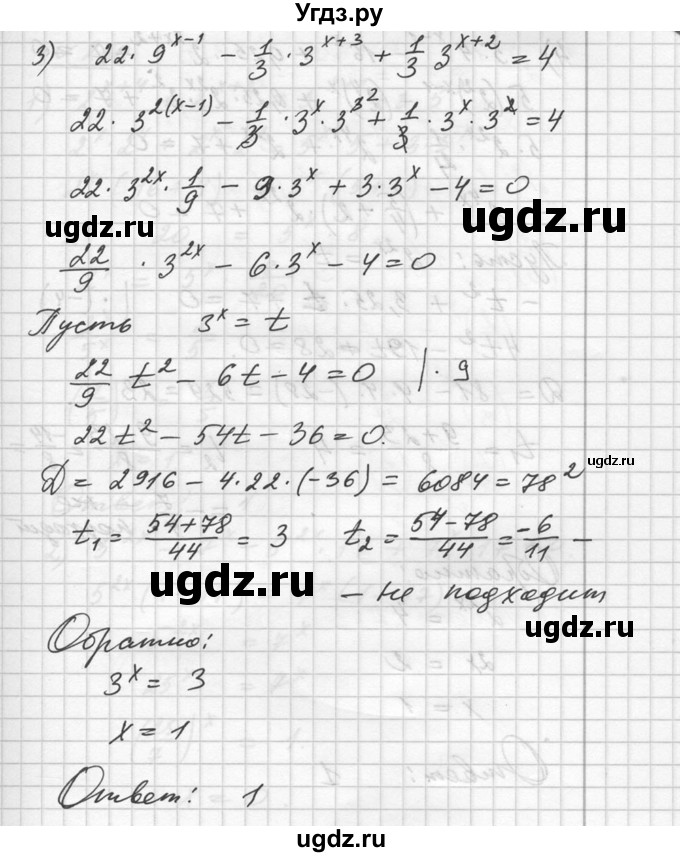 Угдз.ру
3) 22·9^(x-1) - 1/3·3^(x+3) + 1/3 3^(x+2) = 4
22·3^(2(x-1)) - 1/3·3^x·3^(3 2) + 1/3·3^x·3^2 = 4
22·3^(2x)·1/9 - 9·3^x + 3·3^x - 4 = 0
ugdz.ru ugdz.ru
22/9 · 3^(2x) - 6·3^x - 4 = 0
Пусть 3^x = t
22/9 t^2 - 6t - 4 = 0 |·9
22t^2 - 54t - 36 = 0.
ugdz.ru
D = 2916 - 4·22·(-36) = 6084 = 78^2
t₁ = (54+78)/44 = 3 t₂ = (54-78)/44 = -6/11 -
ugdz.ru
- не подходит
ugdz.ru
Обратно:
3^x = 3
x = 1
Ответ: 1
ugdz.ru